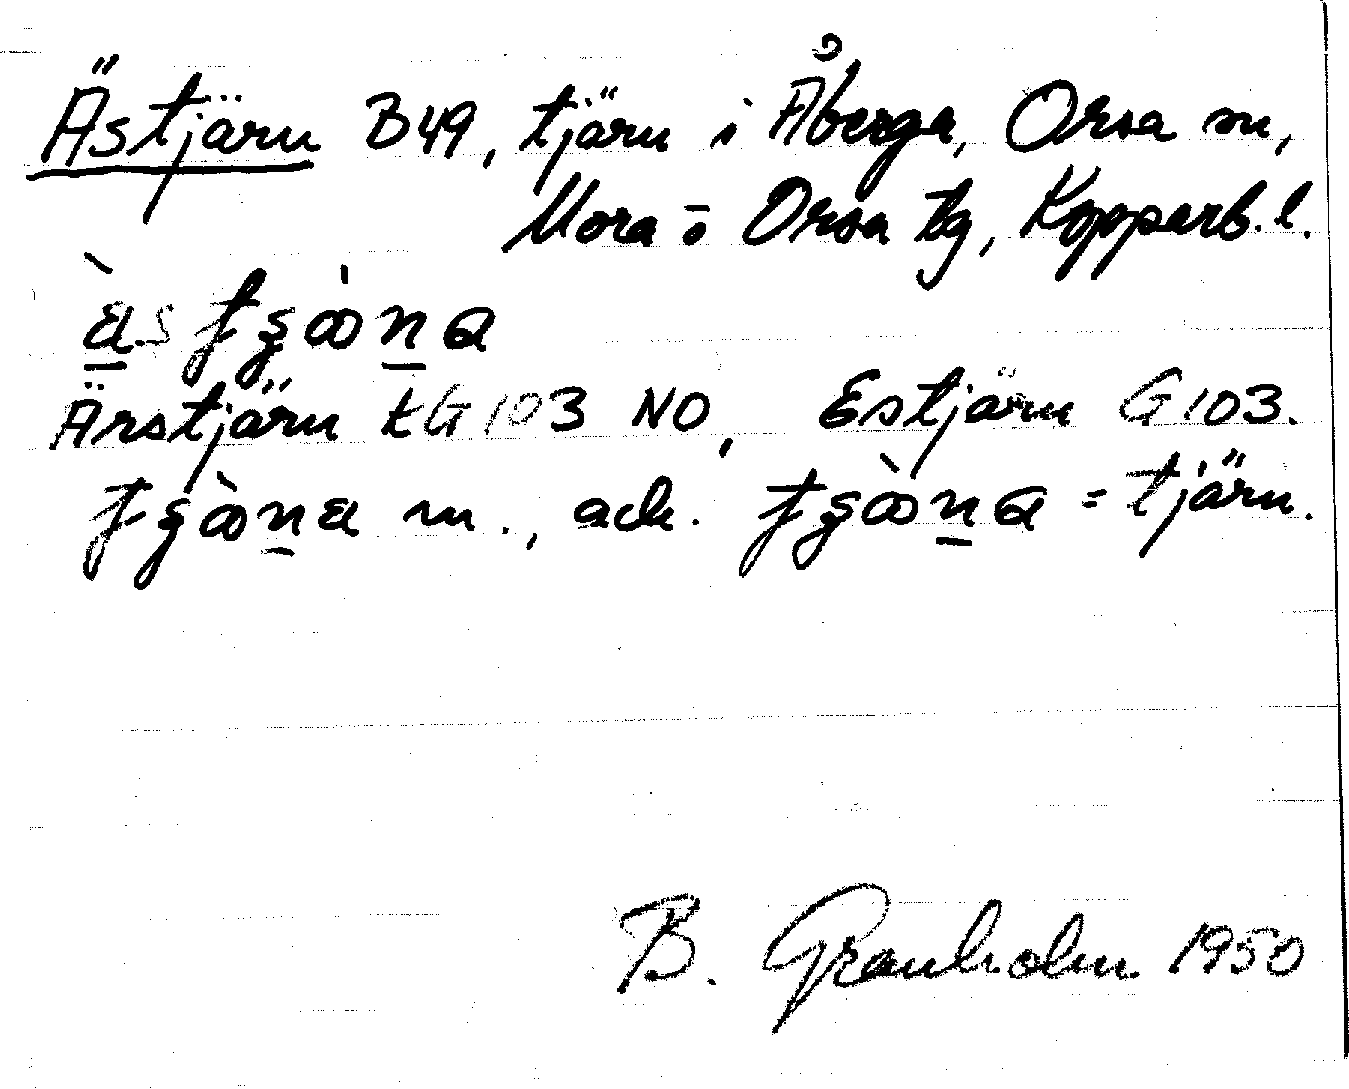 Ästjärn B49, tjärn i Åberga, Orsa sn,
Mora o Orsa tg, Kopparb. l.
Ärstjärn EG 103 NO, Estjärn G 103.
m., ack. = tjärn.
B. Granholm 1950